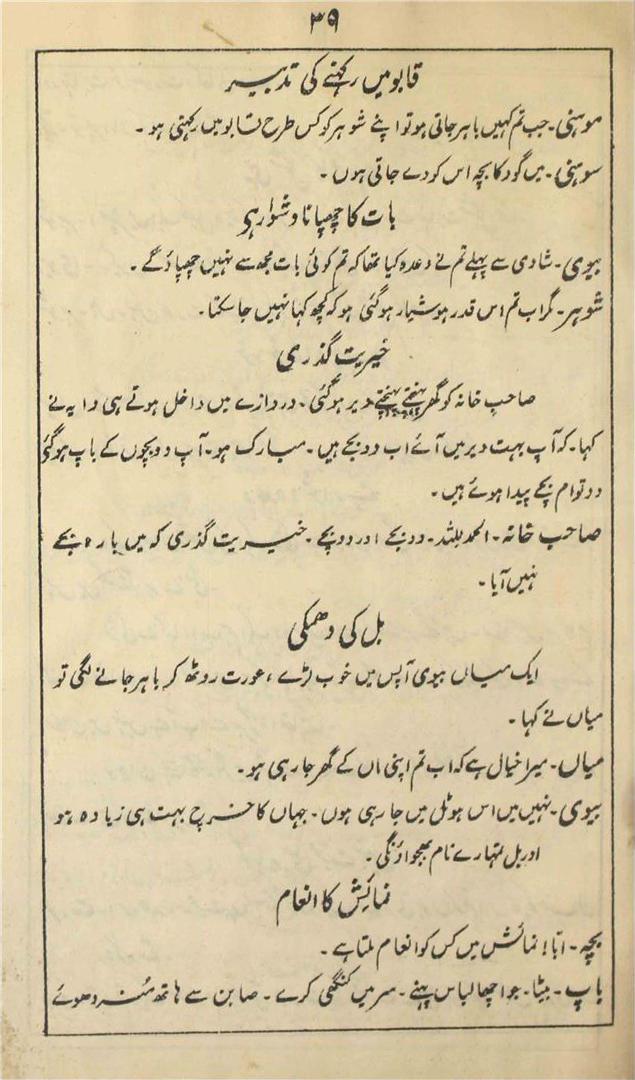 ۳۹
قابو میں رکھنے کی تدبیر
موہنی۔ جب تم کہیں باہر جاتی ہو تو اپنے شوہر کو کس طرح قابو میں رکھتی ہو۔
سوہنی۔ میں گود کا بچہ اس کو دے جاتی ہوں۔
بات کا چھپانا دشوار ہی
بیوی۔ شادی سے پہلے تم نے وعدہ کیا تھا کہ تم کوئی بات مجھ سے نہیں چھپاؤ گے۔
شوہر۔ مگر اب تم اس قدر ہوشیار ہو گئی ہو کہ کچھ کہا نہیں جا سکتا۔
خیریت گذری
صاحبِ خانہ کو گھر پہنچتے پہنچتے دیر ہو گئی۔ دروازے میں داخل ہوتے ہی دایہ نے
کہا۔ کہ آپ بہت دیر میں آئے اب دو بجے ہیں۔ مبارک ہو۔ آپ دو بچوں کے باپ ہو گئی
دو توام بچے پیدا ہوئے ہیں۔
صاحب خانہ۔ الحمد للہ۔ دو بجے اور دو بچے۔ خیریت گذری کہ میں بارہ بجے
نہیں آیا۔
بل کی دھمکی
ایک میاں بیوی آپس میں خوب لڑے، عورت روٹھ کر باہر جانے لگی تو
میاں نے کہا۔
میاں۔ میرا خیال ہے کہ اب تم اپنی ماں کے گھر جا رہی ہو۔
بیوی۔ نہیں میں اس ہوٹل میں جا رہی ہوں۔ جہاں کا خرچ بہت ہی زیادہ ہو
اور بل تمہارے نام بھجواؤنگی۔
نمائش کا انعام
بچہ۔ ابّا! نمائش میں کس کو انعام ملتا ہے۔
باپ۔ بیٹا۔ جو اچھا لباس پہنے۔ سر میں کنگھی کرے۔ صابن سے ہاتھ منہ دھوئے